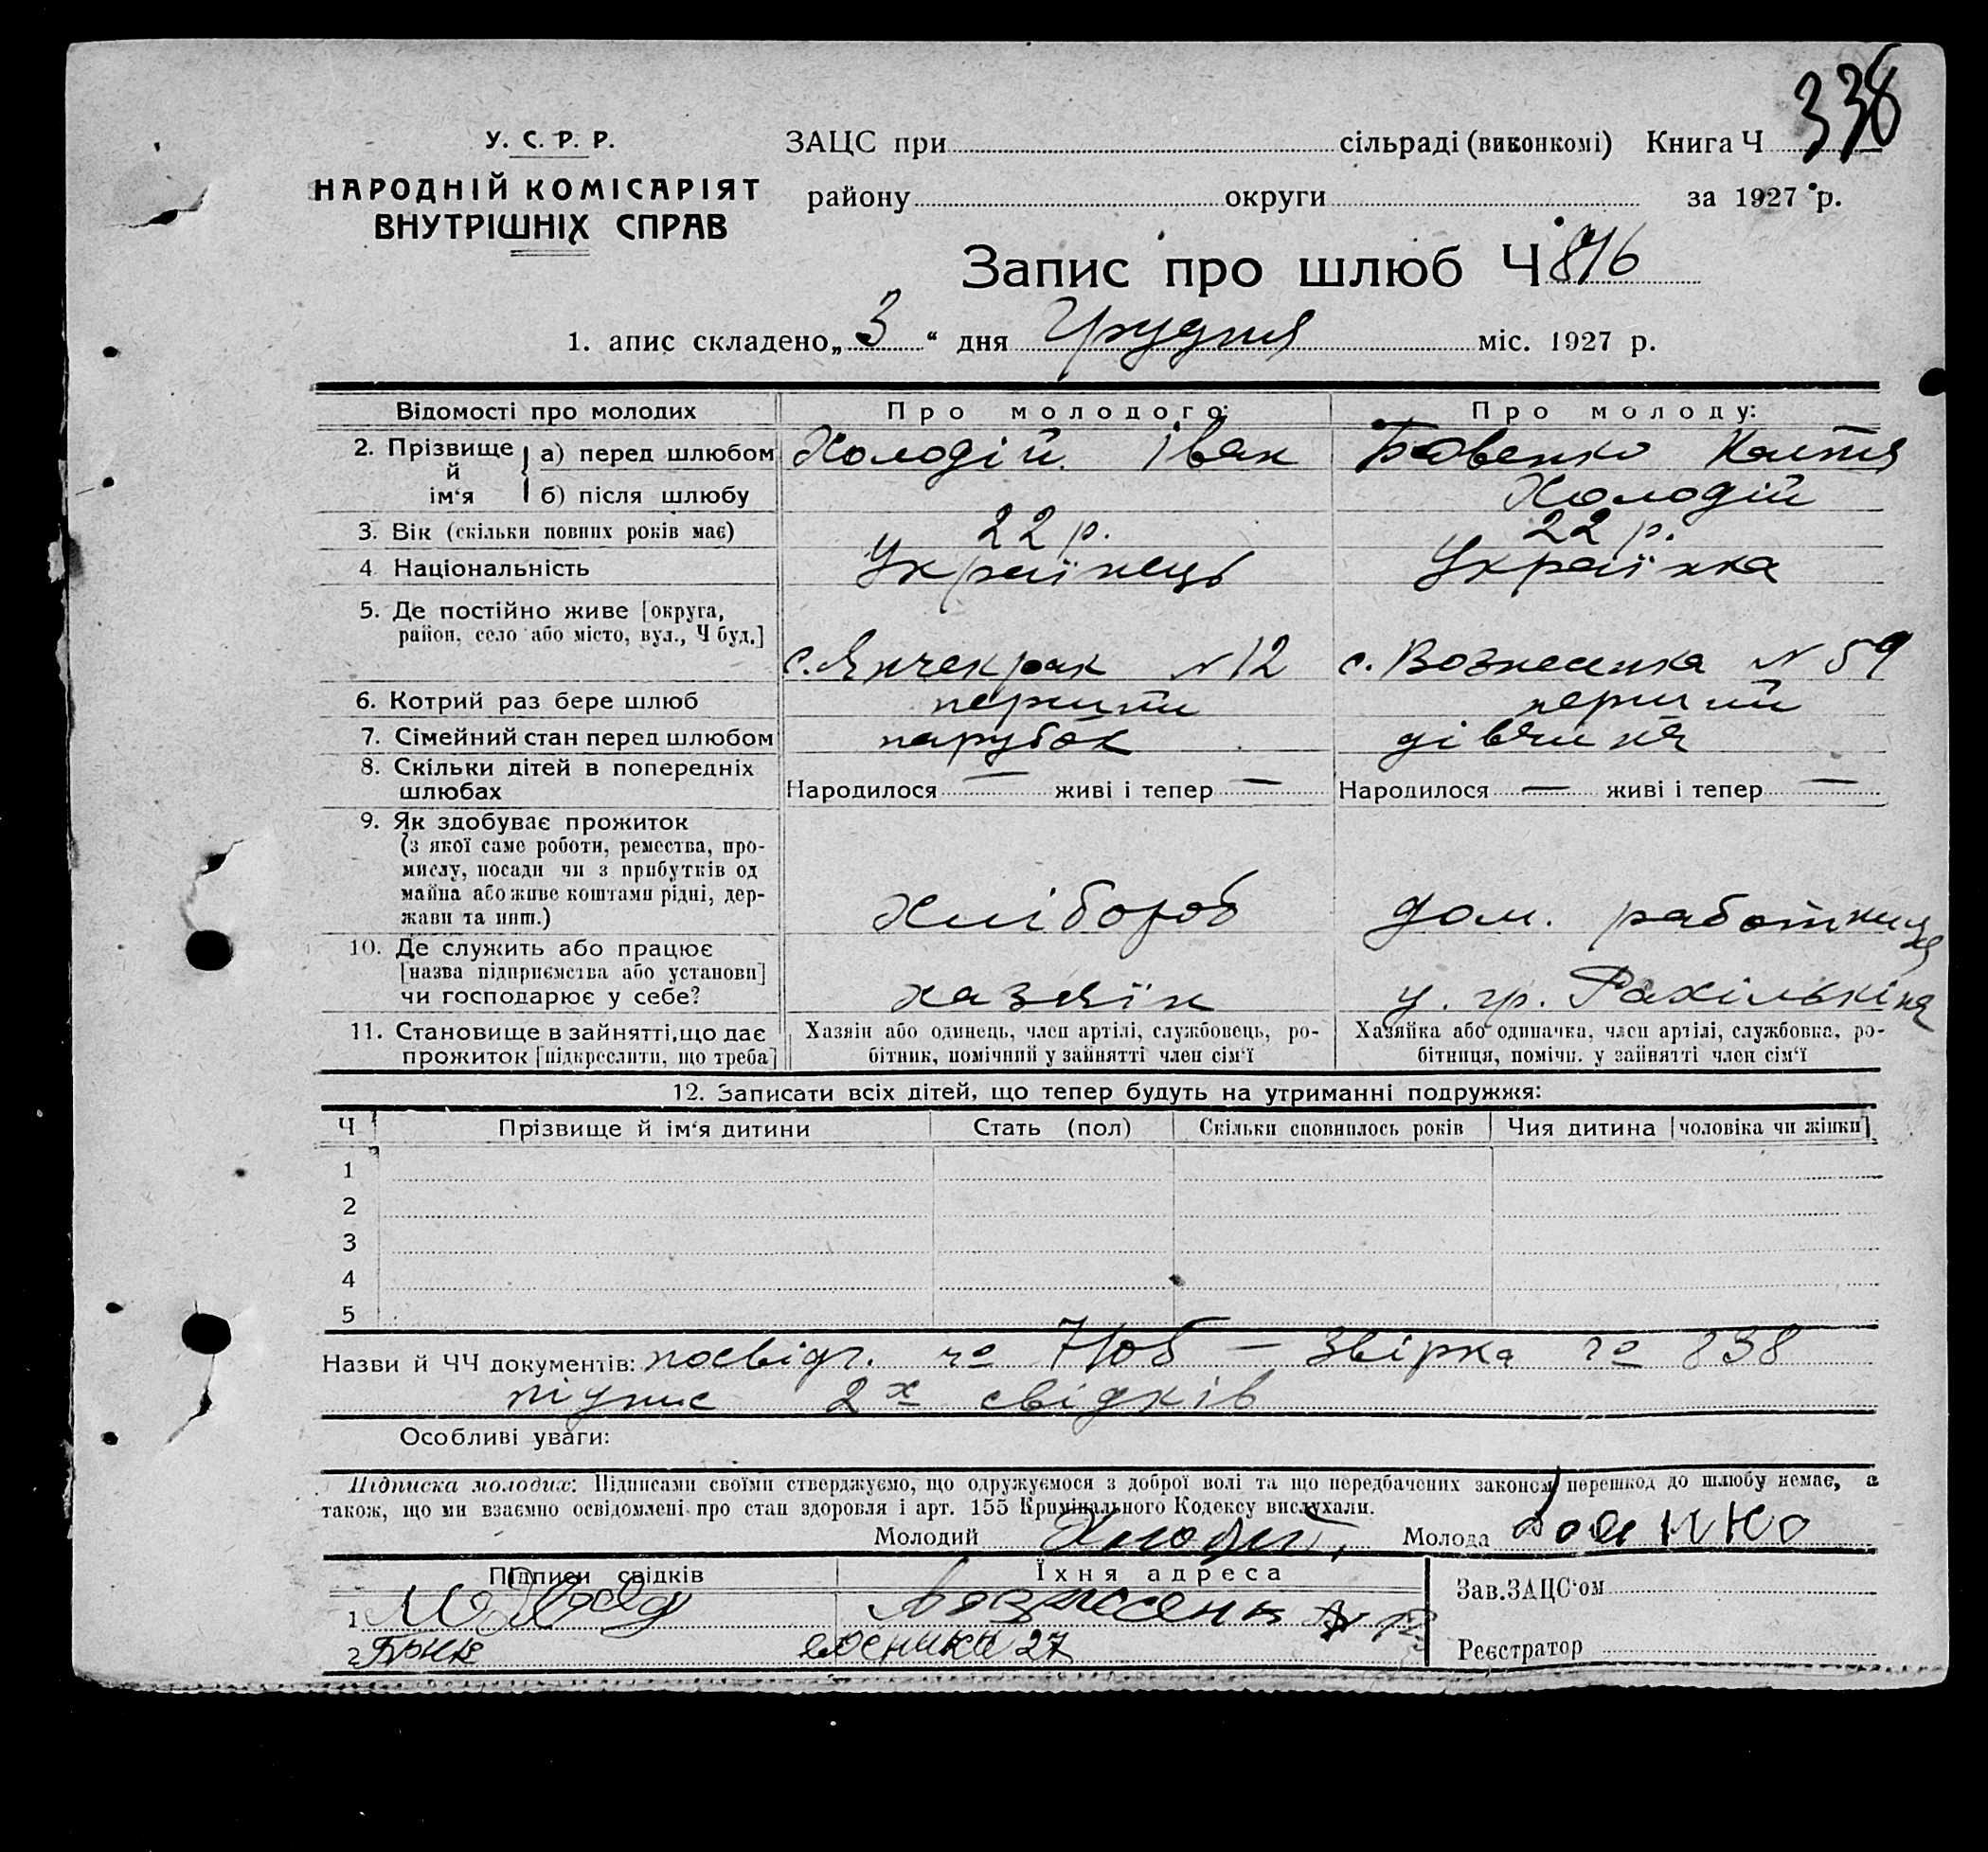 338
У. С. Р. Р.
НАРОДНІЙ КОМІСАРІЯТ
ВНУТРІШНІХ СПРАВ
ЗАЦС при сільраді (виконкомі) Книга Ч
району округи за 1927 р.
Запис про шлюб Ч 876
1. апис складено „ 3 “ дня Грудня міс. 1927 р.
Відомості про молодих Про молодого: Про молоду:
2. Прізвище й ім‘я а) перед шлюбом Холодій Іван Бовенко Катя
б) після шлюбу Холодій
3. Вік (скільки повних років має) 22 р. 22 р.
4. Національність Українець Українка
5. Де постійно живе [округа,
район, село або місто, вул., Ч буд.]
с. Янчекрак N 12 с. Вознесенка N 59
6. Котрий раз бере шлюб перший перший
7. Сімейний стан перед шлюбом парубок дівчина
8. Скільки дітей в попередніх
шлюбах Народилося — живі і тепер — Народилося — живі і тепер —
9. Як здобуває прожиток
(з якої саме роботи, ремества, про-
мислу, посади чи з прибутків од
майна або живе коштами рідні, дер-
жави та инш.) Хлібороб дом. работниця
10. Де служить або працює
[назва підприємства або установи]
чи господарює у себе? хазяїн у гр. Рахількіна
11. Становище в зайнятті, що дає Хазяїн або одинець, член артілі, службовець, ро- Хазяйка або одиначка, член артілі, службовка, ро-
прожиток [підкреслити, що треба] бітник, помічний у зайнятті член сім‘ї бітниця, помічн. у зайнятті член сім‘ї
12. Записати всіх дітей, що тепер будуть на утриманні подружжя:
Ч Прізвище й ім‘я дитини Стать (пол) Скільки сповнилось років Чия дитина [чоловіка чи жінки]
1
2
3
4
5
Назви й ЧЧ документів: посвідч. Звірка 838
підпис 2х свідків
Особливі уваги:
Підписка молодих: Підписами своїми стверджуємо, що одружуємося з доброї волі та що передбачених законом перешкод до шлюбу немає, а
також, що ми взаємно освідомлені про стан здоровля і арт. 155 Кримінального Кодексу вислухали.
Молодий Молода
Підписи свідків Їхня адреса Зав. ЗАЦС‘ом
1
2 27 Реєстратор